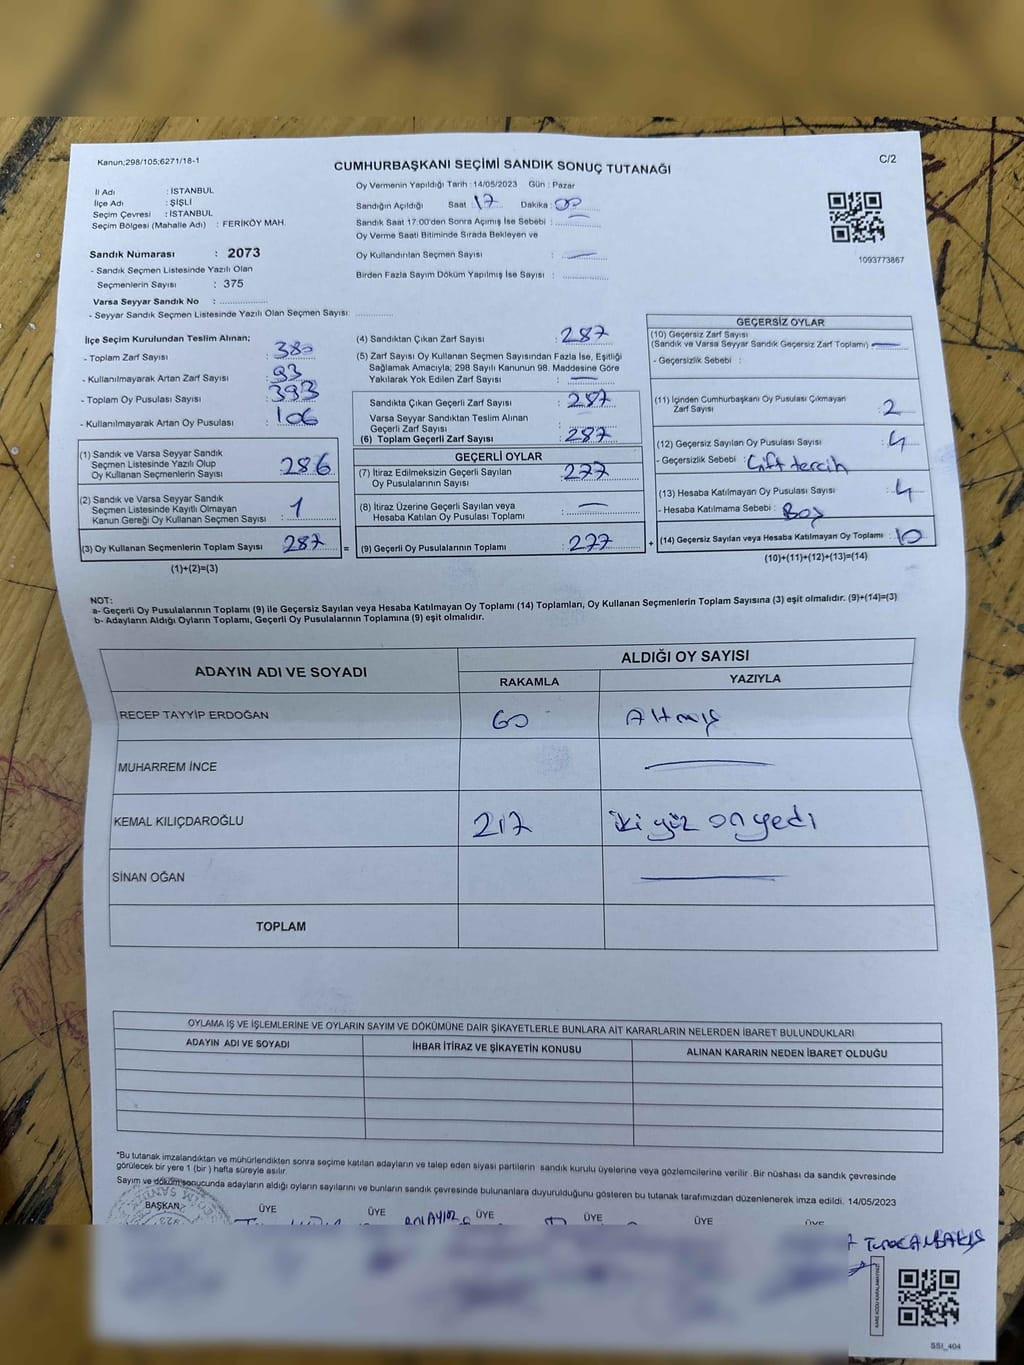 Kanun;298/105;6271/18-1
C/2
CUMHURBAŞKANI SEÇİMİ SANDIK SONUÇ TUTANAĞI
İl Adı : İSTANBUL
İlçe Adı : ŞİŞLİ
Seçim Çevresi : İSTANBUL
Seçim Bölgesi (Mahalle Adı) : FERİKÖY MAH.
Sandık Numarası : 2073
- Sandık Seçmen Listesinde Yazılı Olan
Seçmenlerin Sayısı : 375
Varsa Seyyar Sandık No :
- Seyyar Sandık Seçmen Listesinde Yazılı Olan Seçmen Sayısı:
Oy Vermenin Yapıldığı Tarih : 14/05/2023 Gün : Pazar
Sandığın Açıldığı Saat : 17 Dakika : 00
Sandık Saat 17:00'den Sonra Açımış İse Sebebi :
Oy Verme Saati Bitiminde Sırada Bekleyen ve
Oy Kullandırılan Seçmen Sayısı :
Birden Fazla Sayım Döküm Yapılmış İse Sayısı :
1093773867
İlçe Seçim Kurulundan Teslim Alınan;
- Toplam Zarf Sayısı : 380
- Kullanılmayarak Artan Zarf Sayısı : 93
- Toplam Oy Pusulası Sayısı : 393
- Kullanılmayarak Artan Oy Pusulası : 106
(1) Sandık ve Varsa Seyyar Sandık
Seçmen Listesinde Yazılı Olup
Oy Kullanan Seçmenlerin Sayısı : 286
(2) Sandık ve Varsa Seyyar Sandık
Seçmen Listesinde Kayıtlı Olmayan
Kanun Gereği Oy Kullanan Seçmen Sayısı : 1
(3) Oy Kullanan Seçmenlerin Toplam Sayısı : 287 =
(1)+(2)=(3)
(4) Sandıktan Çıkan Zarf Sayısı : 287
(5) Zarf Sayısı Oy Kullanan Seçmen Sayısından Fazla İse, Eşitliği
Sağlamak Amacıyla; 298 Sayılı Kanunun 98. Maddesine Göre
Yakılarak Yok Edilen Zarf Sayısı :
Sandıkta Çıkan Geçerli Zarf Sayısı : 287
Varsa Seyyar Sandıktan Teslim Alınan
Geçerli Zarf Sayısı :
(6) Toplam Geçerli Zarf Sayısı : 287
GEÇERLİ OYLAR
(7) İtiraz Edilmeksizin Geçerli Sayılan
Oy Pusulalarının Sayısı : 277
(8) İtiraz Üzerine Geçerli Sayılan veya
Hesaba Katılan Oy Pusulası Toplamı :
(9) Geçerli Oy Pusulalarının Toplamı : 277 +
GEÇERSİZ OYLAR
(10) Geçersiz Zarf Sayısı
(Sandık ve Varsa Seyyar Sandık Geçersiz Zarf Toplamı) :
- Geçersizlik Sebebi :
(11) İçinden Cumhurbaşkanı Oy Pusulası Çıkmayan
Zarf Sayısı : 2
(12) Geçersiz Sayılan Oy Pusulası Sayısı : 4
- Geçersizlik Sebebi : Çift tercih
(13) Hesaba Katılmayan Oy Pusulası Sayısı : 4
- Hesaba Katılmama Sebebi : Boş
(14) Geçersiz Sayılan veya Hesaba Katılmayan Oy Toplamı : 10
(10)+(11)+(12)+(13)=(14)
NOT:
a- Geçerli Oy Pusulalarının Toplamı (9) ile Geçersiz Sayılan veya Hesaba Katılmayan Oy Toplamı (14) Toplamları, Oy Kullanan Seçmenlerin Toplam Sayısına (3) eşit olmalıdır. (9)+(14)=(3)
b- Adayların Aldığı Oyların Toplamı, Geçerli Oy Pusulalarının Toplamına (9) eşit olmalıdır.
ADAYIN ADI VE SOYADI
ALDIĞI OY SAYISI
RAKAMLA YAZIYLA
RECEP TAYYİP ERDOĞAN 60 Altmış
MUHARREM İNCE
KEMAL KILIÇDAROĞLU 217 iki yüz on yedi
SİNAN OĞAN
TOPLAM
OYLAMA İŞ VE İŞLEMLERİNE VE OYLARIN SAYIM VE DÖKÜMÜNE DAİR ŞİKAYETLERLE BUNLARA AİT KARARLARIN NELERDEN İBARET BULUNDUKLARI
ADAYIN ADI VE SOYADI İHBAR İTİRAZ VE ŞİKAYETİN KONUSU ALINAN KARARIN NEDEN İBARET OLDUĞU
*Bu tutanak imzalandıktan ve mühürlendikten sonra seçime katılan adayların ve talep eden siyasi partilerin sandık kurulu üyelerine veya gözlemcilerine verilir .Bir nüshası da sandık çevresinde
görülecek bir yere 1 (bir ) hafta süreyle asılır.
Sayım ve döküm sonucunda adayların aldığı oyların sayılarını ve bunların sandık çevresinde bulunanlara duyurulduğunu gösteren bu tutanak tarafımızdan düzenlenerek imza edildi. 14/05/2023
BAŞKAN ÜYE ÜYE ÜYE ÜYE ÜYE ÜYE
SSI_404